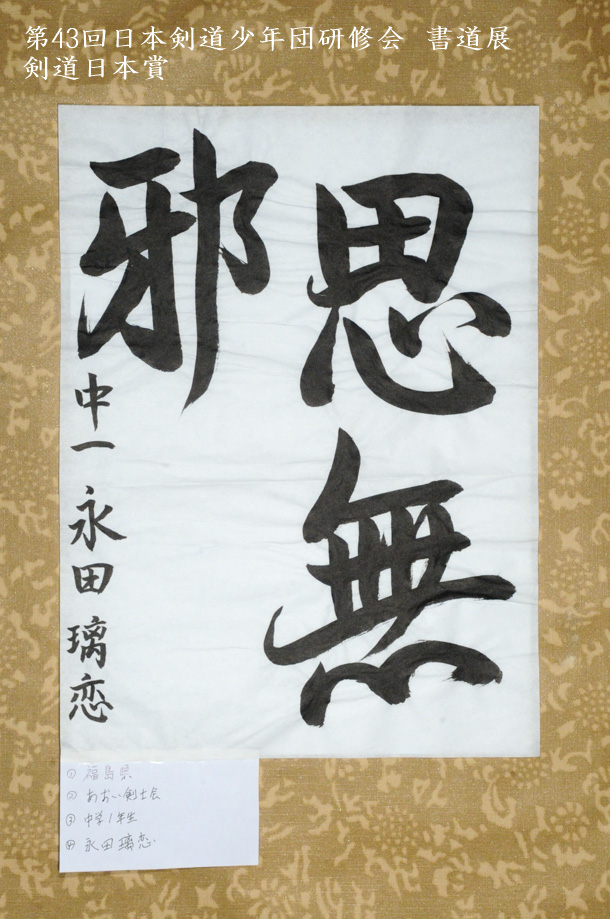 第43回日本剣道少年団研修会 書道展
剣道日本賞
思無
邪
中一 永田 璃恋
① 福島県
② あおい剣士会
③ 中学1年生
④ 永田 璃恋